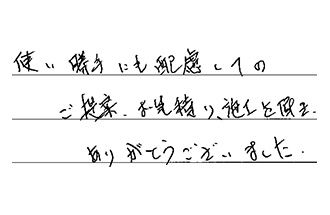 使い勝手にも配慮しての
ご提案、お見積り、施工を頂き
ありがとうございました.